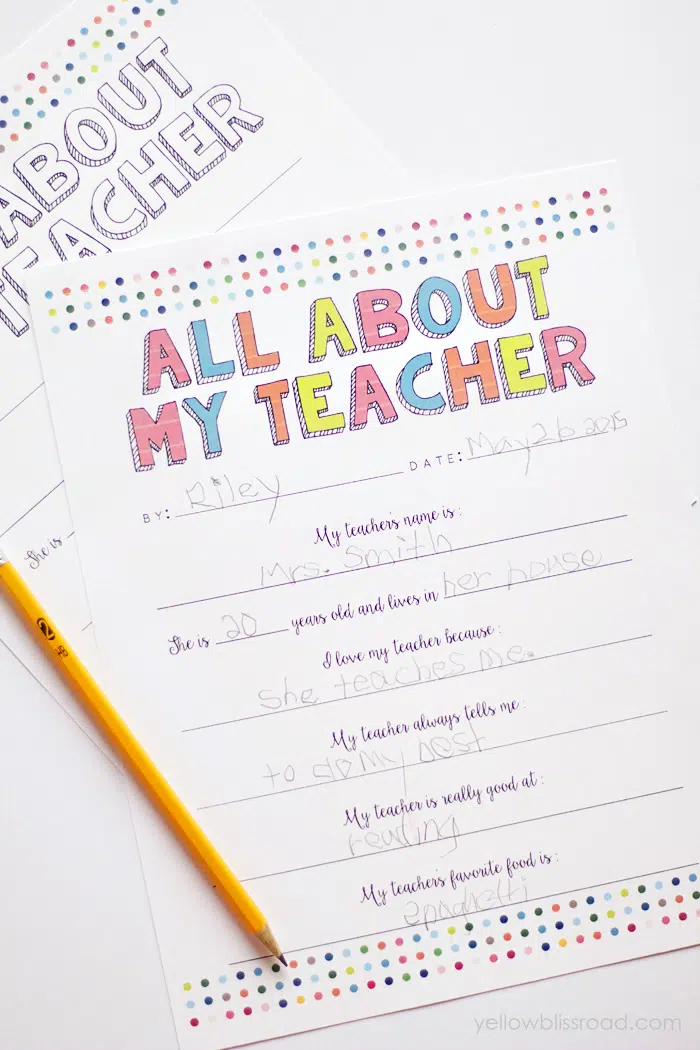 ABOUT
TEACHER
She is
ALL ABOUT
MY TEACHER
BY: Riley DATE: May 26 2015
My teacher's name is:
Mrs. Smith
She is 20 years old and lives in her house
I love my teacher because:
She teaches me.
My teacher always tells me:
to do my best
My teacher is really good at:
reading
My teacher's favorite food is:
spaghetti
2
yellowblissroad.com